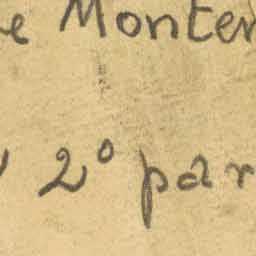 e Monter
2º par